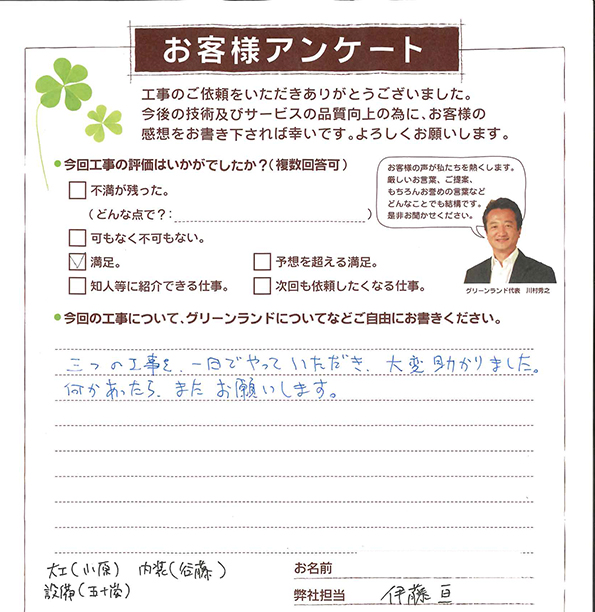 お客様アンケート
工事のご依頼をいただきありがとうございました。
今後の技術及びサービスの品質向上の為に、お客様の
感想をお書き下されば幸いです。よろしくお願いします。
•今回工事の評価はいかがでしたか？(複数回答可)
不満が残った。
(どんな点で？: )
可もなく不可もない。
満足。
予想を超える満足。
知人等に紹介できる仕事。
次回も依頼したくなる仕事。
お客様の声が私たちを熱くします。
厳しいお言葉、ご提案、
もちろんお誉めの言葉など
どんなことでも結構です。
是非お聞かせください。
グリーンランド代表 川村秀之
•今回の工事について、グリーンランドについてなどご自由にお書きください。
三つの工事を、一日でやっていただき、大変助かりました。
何かあったら、また お願いします。
大工(小原) 内装(谷藤)
設備(五十嵐)
お名前
弊社担当 伊藤 亘